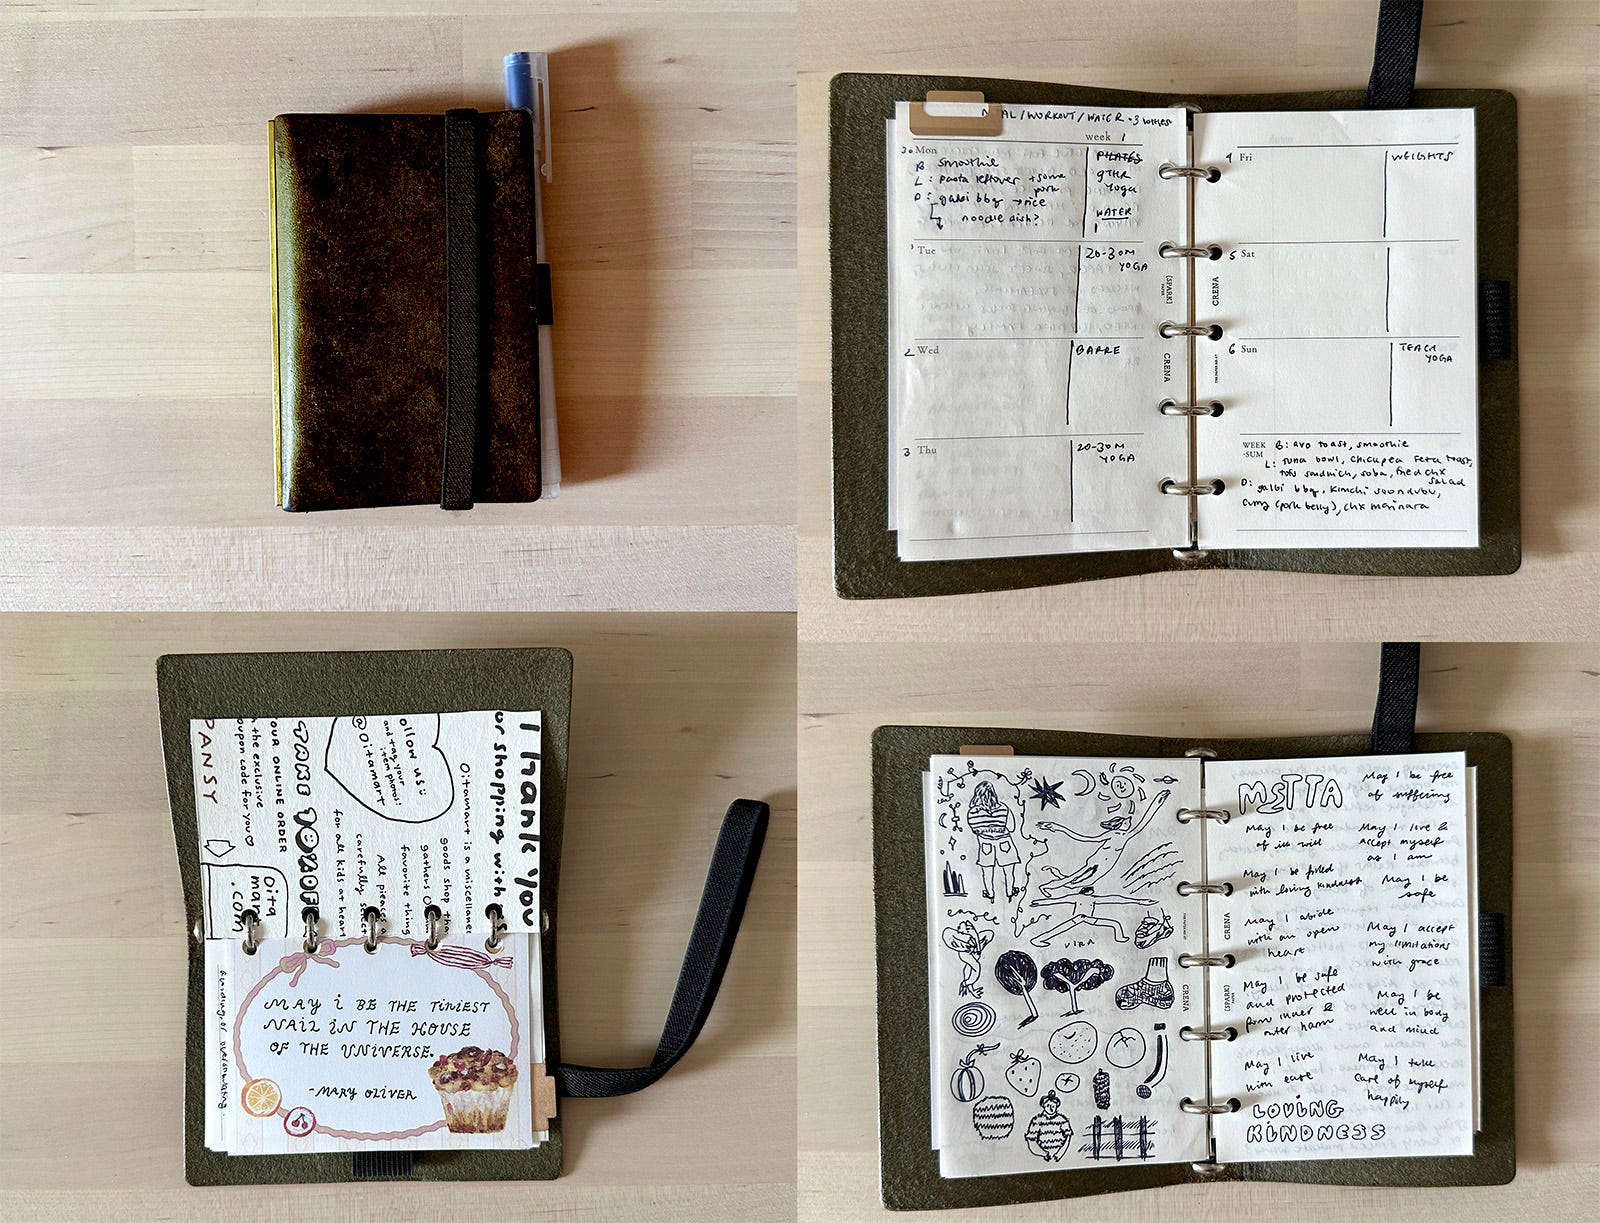 MEAL / WORKOUT / WATER - 3 bottles
week 1
30 Mon
B smoothie
L: pasta leftover + some pork
D: galbi bbq → rice
noodle dish?
PILATES
9THR
Yoga
WATER
1
1 Tue
20-30M
YOGA
2 Wed
BARRE
3 Thu
20-30M
YOGA
[SPARK]
CRENA
CRENA
4 Fri
WEIGHTS
5 Sat
6 Sun
TEACH
YOGA
WEEK
-SUM
B: avo toast, smoothie
L: tuna bowl, chickpea feta toast,
tofu sandwich, soba, fried chx
salad
D: galbi bbq, kimchi soondubu,
curry (pork belly), chx marinara
I hank you
ur shopping with
Oitamart is a miscellane
goods shop tha
gathers O
favorite thing
All pieces a
carefully selec
for all kids at heart
ollow us
and tag your
item photos!
@Oitamart
TAKE 10% OFF
OUR ONLINE ORDER
the exclusive
oupon code for you
PANSY
Oita
mar
.com
MAY i BE THE TINIEST
NAIL IN THE HOUSE
OF THE UNIVERSE.
-MARY OLIVER
VIRA
CRENA
CRENA
[SPARK]
METTA
May I be free
of suffering
May I be free
of ill will
May I love &
accept myself
as I am
May I be filled
with loving kindness
May I be
safe
May I abide
with an open
heart
May I accept
my limitations
with grace
May I be safe
and protected
from inner &
outer harm
May I be
well in body
and mind
May I live
with ease
May I take
care of myself
happily
LOVING
KINDNESS